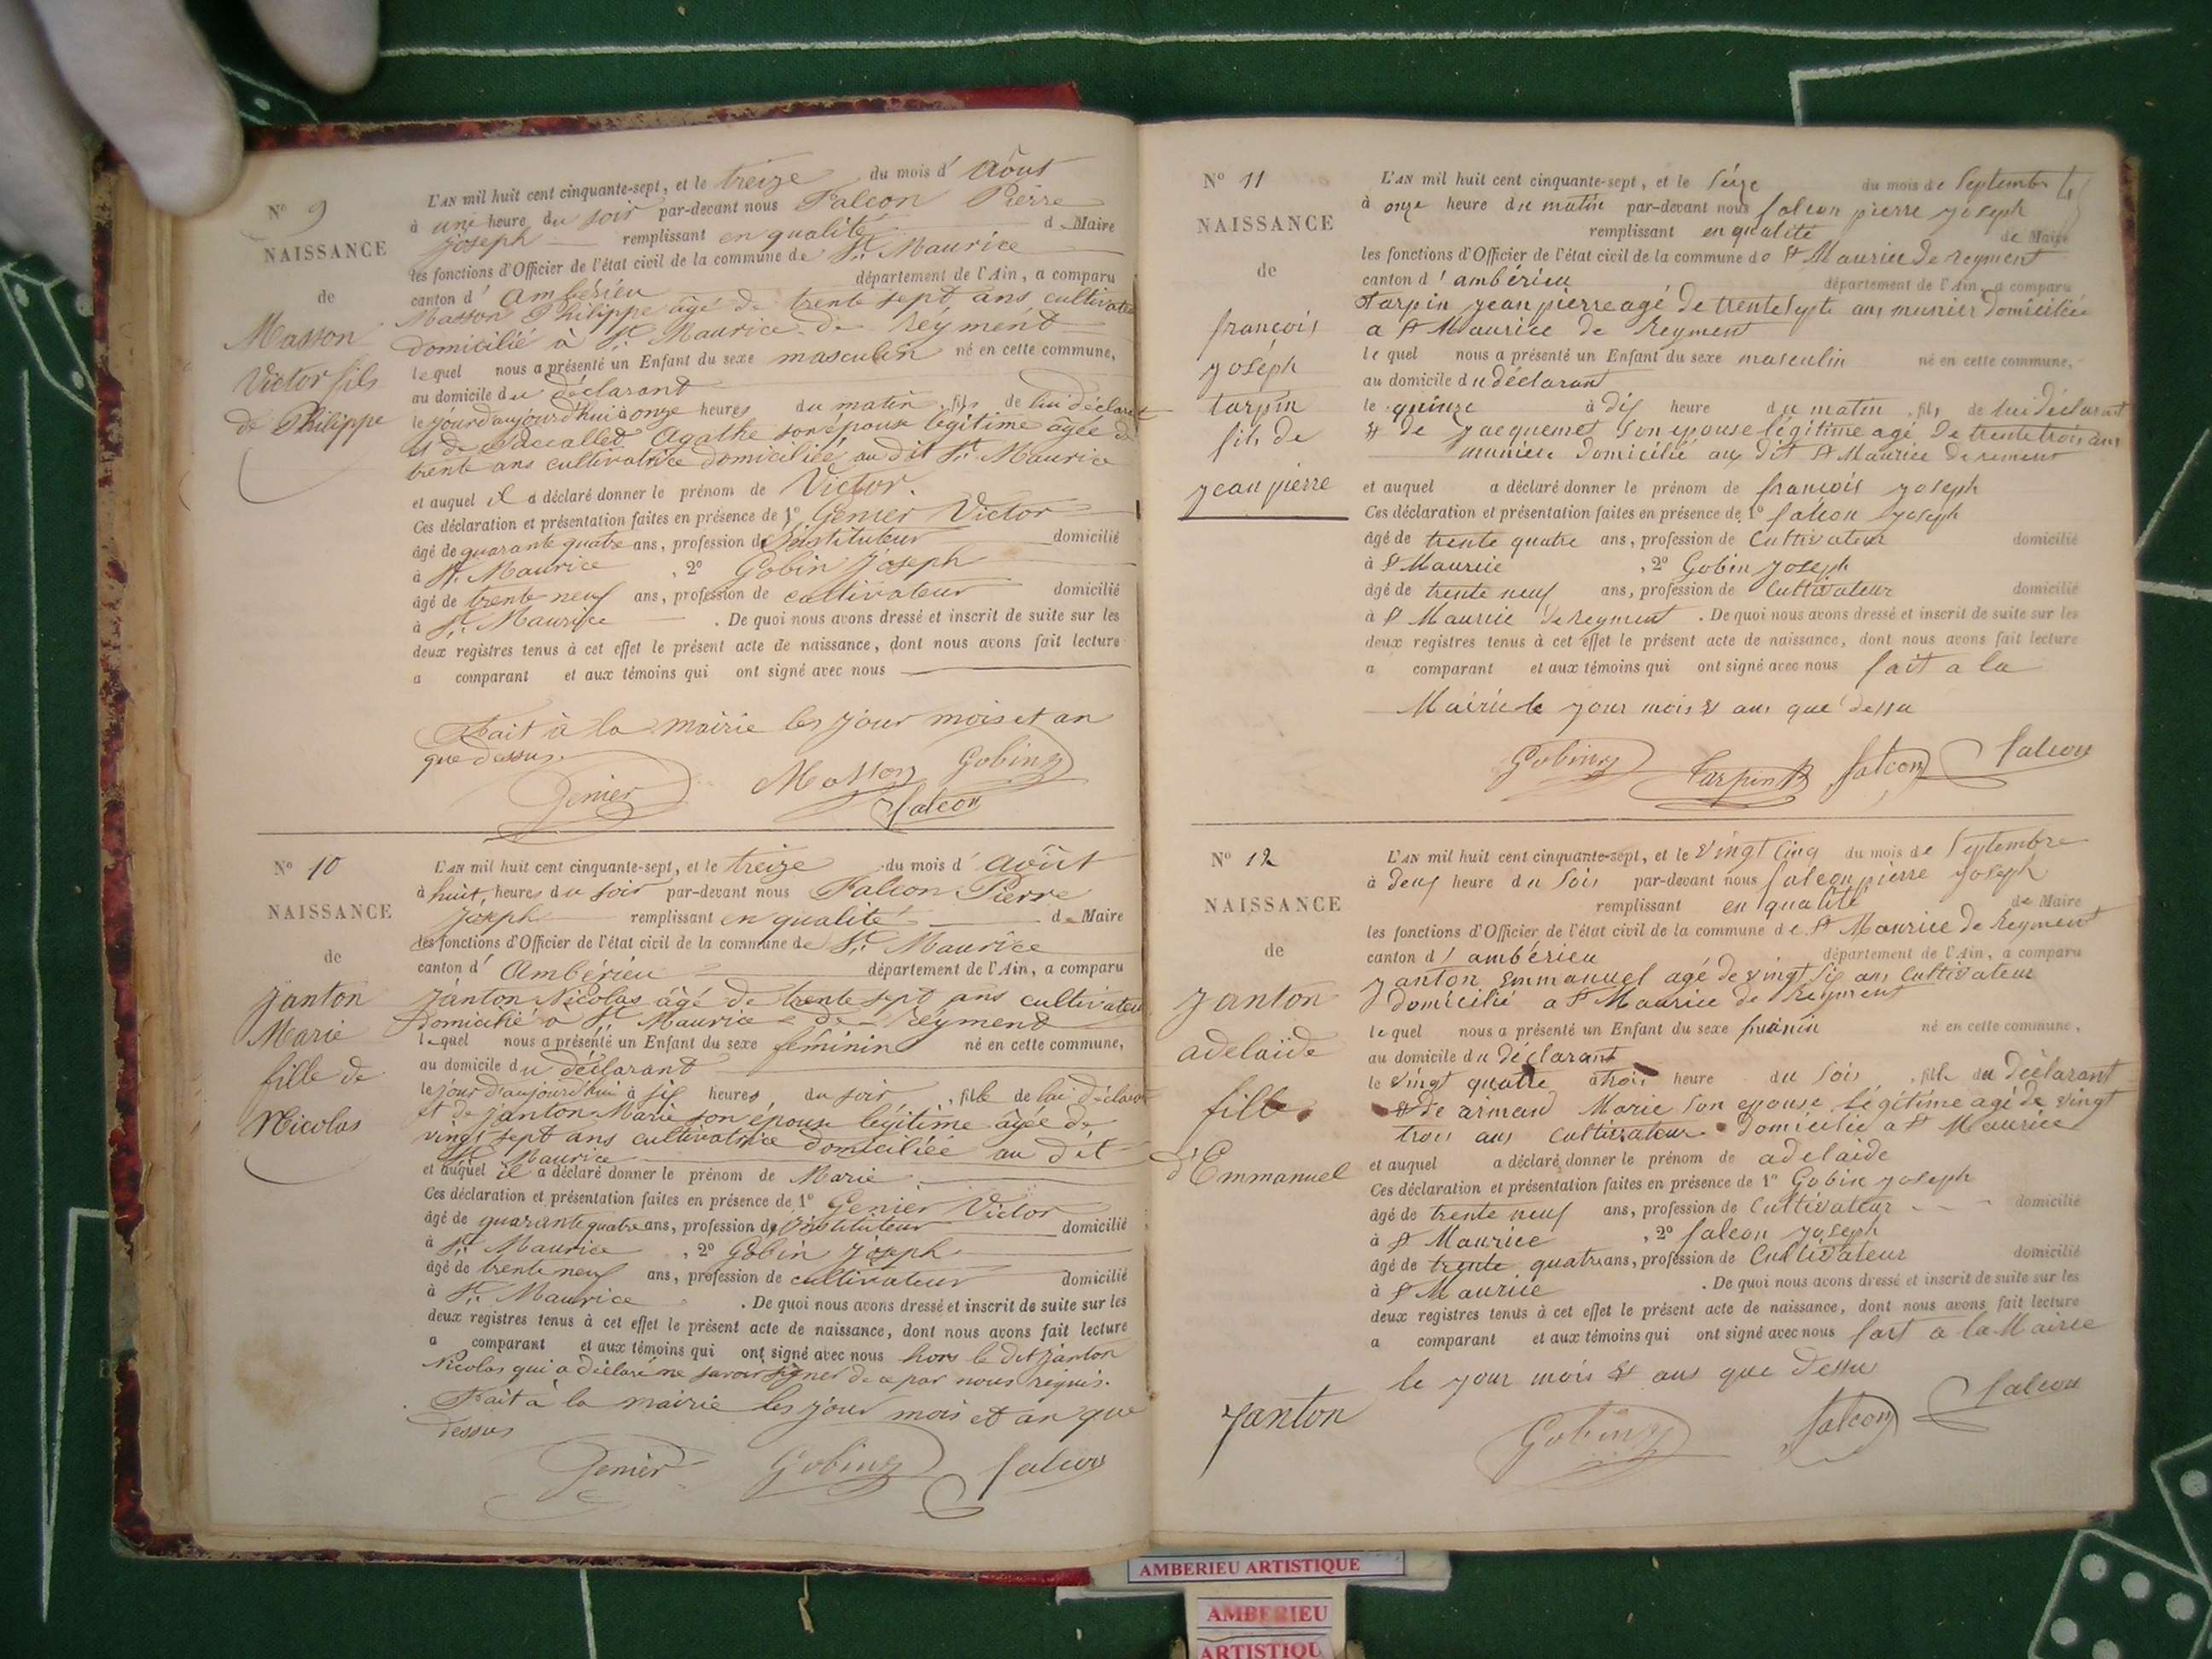 N° 9
NAISSANCE
de
Masson
Victor fils
de Philippe
L'AN mil huit cent cinquante-sept, et le treize du mois d' Août
à une heure du soir par-devant nous Falcon Pierre
joseph remplissant en qualité de Maire
les fonctions d'Officier de l'état civil de la commune de St. Maurice
canton d' Ambérieu département de l'Ain, a comparu
Masson Philippe âgé de trente sept ans cultivateur
domicilié à St. Maurice de Réyment
lequel nous a présenté un Enfant du sexe masculin né en cette commune,
au domicile du déclarant
le jour d'aujourd'hui à onze heures du matin, fils de lui déclarant
et de Agathe son épouse légitime âgée de
trente ans cultivatrice domiciliée au dit St. Maurice
et auquel il a déclaré donner le prénom de Victor.
Ces déclaration et présentation faites en présence de 1° Genier Victor
âgé de quarante quatre ans, profession d'instituteur domicilié
à St. Maurice, 2° Gobin Joseph
âgé de trente neuf ans, profession de cultivateur domicilié
à St. Maurice. De quoi nous avons dressé et inscrit de suite sur les
deux registres tenus à cet effet le présent acte de naissance, dont nous avons fait lecture
a comparant et aux témoins qui ont signé avec nous
Fait à la mairie les jour mois et an
que dessus.
Genier Masson Gobin
Falcon
N° 10
NAISSANCE
de
Janton
Marie
fille de
Nicolas
L'AN mil huit cent cinquante-sept, et le treize du mois d' août
à huit heures du soir par-devant nous Falcon Pierre
Joseph remplissant en qualité de Maire
les fonctions d'Officier de l'état civil de la commune de St. Maurice
canton d' Ambérieu département de l'Ain, a comparu
Janton Nicolas âgé de trente sept ans cultivateur
domicilié à St. Maurice de Réyment
lequel nous a présenté un Enfant du sexe féminin né en cette commune,
au domicile du déclarant
le jour d'aujourd'hui à six heures du soir, fille de lui déclarant
et de Janton Marie son épouse légitime âgée de
vingt sept ans cultivatrice domiciliée au dit
St. Maurice
et auquel il a déclaré donner le prénom de Marie
Ces déclaration et présentation faites en présence de 1° Genier Victor
âgé de quarante quatre ans, profession d'instituteur domicilié
à St. Maurice, 2° Gobin Joseph
âgé de trente neuf ans, profession de cultivateur domicilié
à St. Maurice. De quoi nous avons dressé et inscrit de suite sur les
deux registres tenus à cet effet le présent acte de naissance, dont nous avons fait lecture
a comparant et aux témoins qui ont signé avec nous hors le dit Janton
Nicolas qui a déclaré ne savoir signer de ce par nous requis.
Fait à la mairie les jour mois et an que
dessus
Genier Gobin falcon
N° 11
NAISSANCE
de
françois
joséph
tarpin
fils de
jean pierre
L'AN mil huit cent cinquante-sept, et le séize du mois de Septembre
à onze heure du matin par-devant nous falcon pierre joseph
remplissant en qualité de Maire
les fonctions d'Officier de l'état civil de la commune de St Maurice de reyment
canton d' ambérieu département de l'Ain, a comparu
tarpin jean pierre agé de trente septe ans munier domiciliée
a St Maurice de Reyment
lequel nous a présenté un Enfant du sexe masculin né en cette commune,
au domicile du déclarant
le quinze à dix heure du matin, fils de lui déclarant
et de jacquemet son epouse légitime agé de trente trois ans
munière domicilié aux dit St Maurice de rement
et auquel a déclaré donner le prénom de françois joseph
Ces déclaration et présentation faites en présence de 1° falcon joseph
âgé de trente quatre ans, profession de cultivateur domicilié
à St Maurice, 2° Gobin joseph
âgé de trente neuf ans, profession de cultivateur domicilié
à St Maurice de reyment. De quoi nous avons dressé et inscrit de suite sur les
deux registres tenus à cet effet le présent acte de naissance, dont nous avons fait lecture
a comparant et aux témoins qui ont signé avec nous fait a la
Mairie le jour mois et ans que dessu
Gobin tarpin falcon falcon
N° 12
NAISSANCE
de
Janton
adelaïde
fille
d'Emmanuel
L'AN mil huit cent cinquante-sept, et le vingt cinq du mois de Septembre
à deux heure du soir par-devant nous falcon pierre joseph
remplissant en qualité de Maire
les fonctions d'Officier de l'état civil de la commune de St Maurice de Reyment
canton d' ambérieu département de l'Ain, a comparu
janton Emmanuel agé de vingt six ans cultivateur
domicilié a St Maurice de Reyment
lequel nous a présenté un Enfant du sexe né en cette commune,
au domicile du déclarant
le vingt quatre à trois heure du soir, fille du déclarant
et de armand Marie son epouse légitime agé de vingt
trois ans cultivateur domicilié a St Maurice
et auquel a déclaré donner le prénom de adelaide
Ces déclaration et présentation faites en présence de 1° Gobin joseph
âgé de trente neuf ans, profession de cultivateur domicilié
à St Maurice, 2° falcon joseph
âgé de trente quatre ans, profession de cultivateur domicilié
à St Maurice. De quoi nous avons dressé et inscrit de suite sur les
deux registres tenus à cet effet le présent acte de naissance, dont nous avons fait lecture
a comparant et aux témoins qui ont signé avec nous fait a la Mairie
le jour mois et ans que dessu
Janton Gobin falcon falcon
AMBERIEU ARTISTIQUE
AMBERIEU
ARTISTIQU